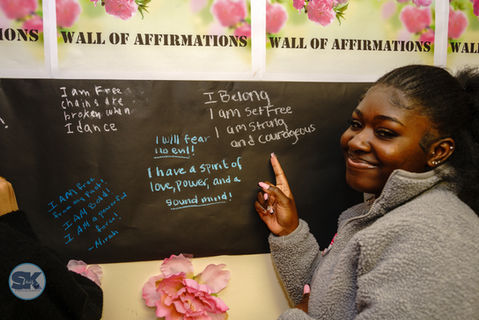 ONS
WALL OF AFFIRMATIONS
WALL OF AFFIRMATIONS
WALL
I am Free
chains are
broken when
I dance
I Belong
I am set Free
I am strong
and courageous
I will fear
no evil!
I have a spirit of
love, power, and a
sound mind!
I AM free
from my past!
I AM Bold!
I AM a powerful
force!
SK